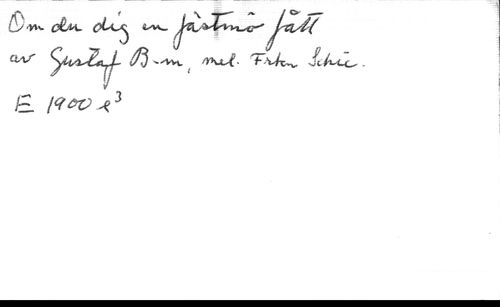 Om du dig en fästmö fått
av Gustaf B-m, mel. Frkn Schic.
E 1900 e³